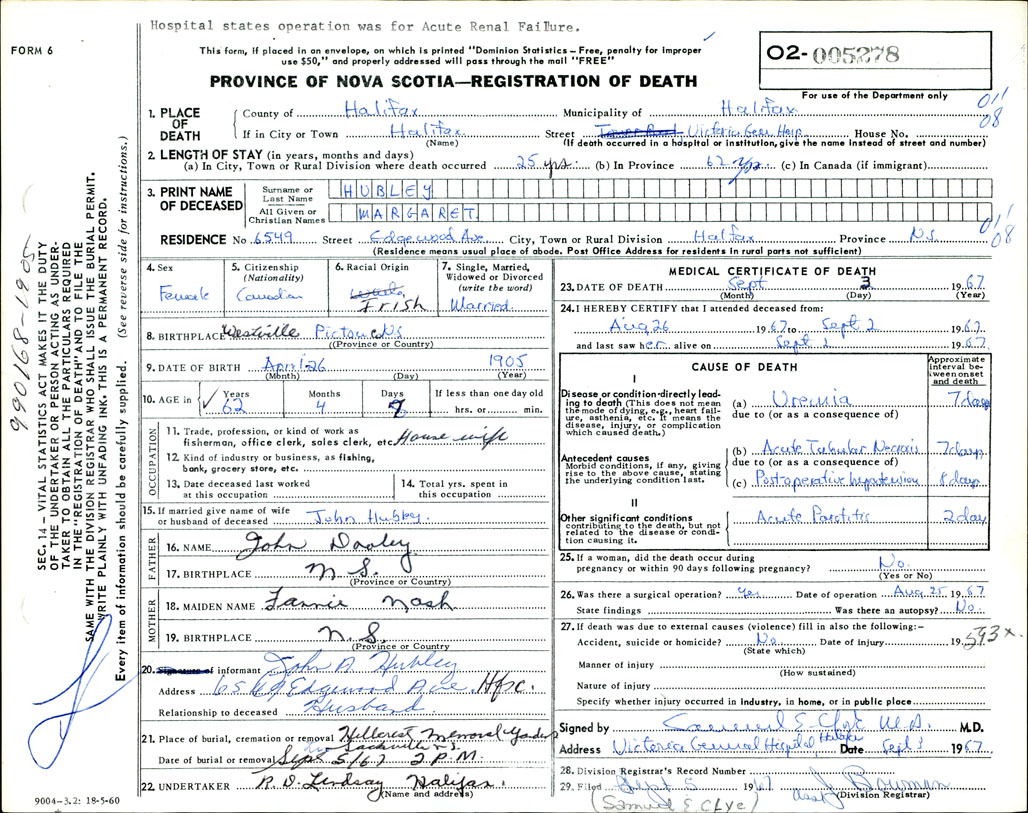 Hospital states operation was for Acute Renal Failure.
FORM 6
This form, if placed in an envelope, on which is printed "Dominion Statistics – Free, penalty for improper
use $50," and properly addressed will pass through the mail "FREE"
02-005278
PROVINCE OF NOVA SCOTIA—REGISTRATION OF DEATH
For use of the Department only
1. PLACE OF DEATH
County of Halifax Municipality of Halifax
011
08
If in City or Town Halifax Street Victoria Gen. Hosp. House No.
(Name) (If death occurred in a hospital or institution, give the name instead of street and number)
2. LENGTH OF STAY (in years, months and days)
(a) In City, Town or Rural Division where death occurred 25 yrs. (b) In Province 62 yrs (c) In Canada (if immigrant)
3. PRINT NAME OF DECEASED
Surname or Last Name HUBLEY
All Given or Christian Names MARGARET
RESIDENCE No 6549 Street Edgewood Ave City, Town or Rural Division Halifax Province N.S.
011
08
(Residence means usual place of abode. Post Office Address for residents in rural parts not sufficient)
4. Sex
Female
5. Citizenship
(Nationality)
Canadian
6. Racial Origin
Irish
7. Single, Married,
Widowed or Divorced
(write the word)
Married.
8. BIRTHPLACE Westville Pictou Co N.S.
(Province or Country)
9. DATE OF BIRTH April 26 1905
(Month) (Day) (Year)
10. AGE in
Years Months Days If less than one day old
62 4 hrs. or min.
OCCUPATION
11. Trade, profession, or kind of work as
fisherman, office clerk, sales clerk, etc. House wife
12. Kind of industry or business, as fishing,
bank, grocery store, etc.
13. Date deceased last worked
at this occupation
14. Total yrs. spent in
this occupation
15. If married give name of wife
or husband of deceased John Hubley.
FATHER
16. NAME John Dooley
17. BIRTHPLACE N.S.
(Province or Country)
MOTHER
18. MAIDEN NAME Fannie Nash
19. BIRTHPLACE N.S.
(Province or Country)
20. Signature of informant John A Hubley
Address 6549 Edgewood Ave. Hfx.
Relationship to deceased Husband.
21. Place of burial, cremation or removal Hillcrest Memorial Gardens
Sackville N.S.
Date of burial or removal Sept 5/67 2 P.M.
22. UNDERTAKER R. D. Lindsay Halifax.
(Name and address)
9004-3.2: 18-5-60
MEDICAL CERTIFICATE OF DEATH
23. DATE OF DEATH Sept 3 1967
(Month) (Day) (Year)
24. I HEREBY CERTIFY that I attended deceased from:
Aug 26 1967 to Sept 2 1967
and last saw her alive on Sept 2 1967.
CAUSE OF DEATH
Approximate
interval be-
tween onset
and death
I
Disease or condition directly lead-
ing to death (This does not mean
the mode of dying, e.g., heart fail-
ure, asthenia, etc. It means the
disease, injury, or complication
which caused death.)
(a) Uremia 7 days
due to (or as a consequence of)
Antecedent causes
Morbid conditions, if any, giving
rise to the above cause, stating
the underlying condition last.
(b) Acute Tubular Necrosis 7 days
due to (or as a consequence of)
(c) Post-operative hypotension 8 days
II
Other significant conditions
contributing to the death, but not
related to the disease or condi-
tion causing it.
Acute Parotitis 2 day
25. If a woman, did the death occur during
pregnancy or within 90 days following pregnancy? No.
(Yes or No)
26. Was there a surgical operation? Yes Date of operation Aug 25 1967
State findings Was there an autopsy? No.
27. If death was due to external causes (violence) fill in also the following:–
Accident, suicide or homicide? No. Date of injury 19
593x.
(State which)
Manner of injury
(How sustained)
Nature of injury
Specify whether injury occurred in industry, in home, or in public place
Signed by Samuel E. Clyc M.D. M.D.
Address Victoria General Hospital Halifax Date Sept 3 1967.
28. Division Registrar's Record Number
29. Filed Sept 5 1967 J Bowman
(Division Registrar)
(Samuel E. Clyc)
990168-1905
SEC. 14 – VITAL STATISTICS ACT MAKES IT THE DUTY
OF THE UNDERTAKER OR PERSON ACTING AS UNDER-
TAKER TO OBTAIN ALL THE PARTICULARS REQUIRED
IN THE "REGISTRATION OF DEATH" AND TO FILE THE
SAME WITH THE DIVISION REGISTRAR WHO SHALL ISSUE THE BURIAL PERMIT.
WRITE PLAINLY WITH UNFADING INK. THIS IS A PERMANENT RECORD.
Every item of information should be carefully supplied. (See reverse side for instructions.)